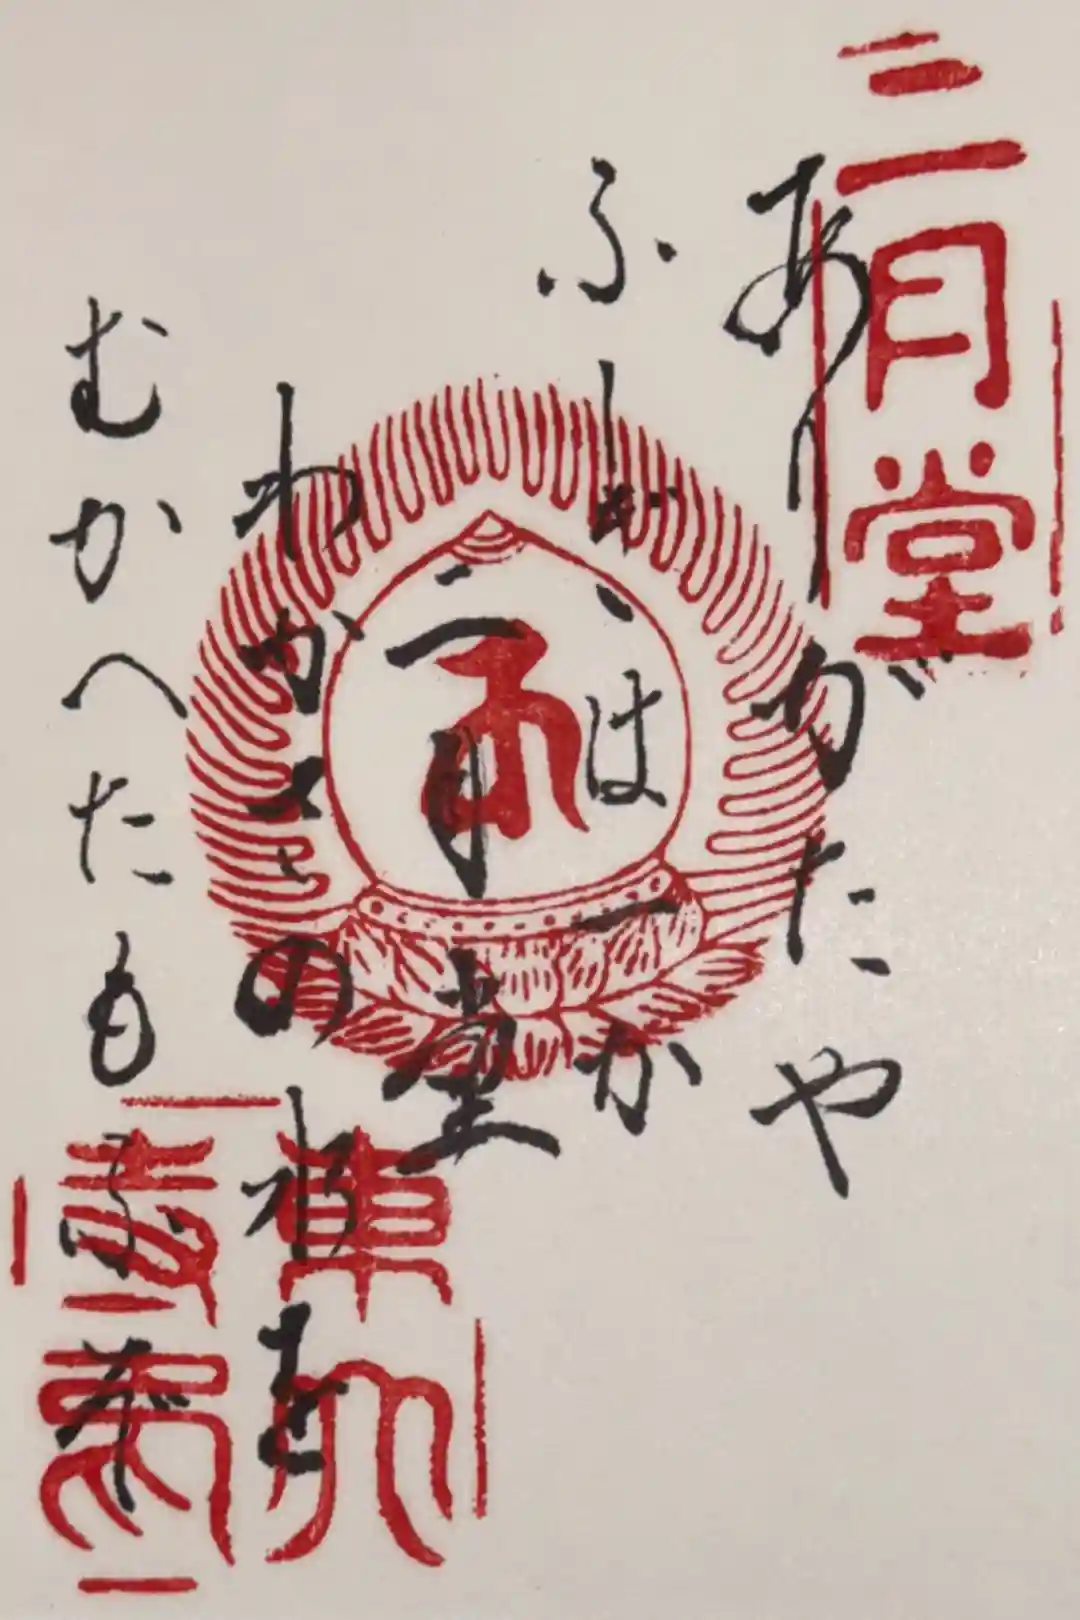 二月堂
ありがたや
ふしぎは一か
二月堂
わかさの水を
むかへたもふ